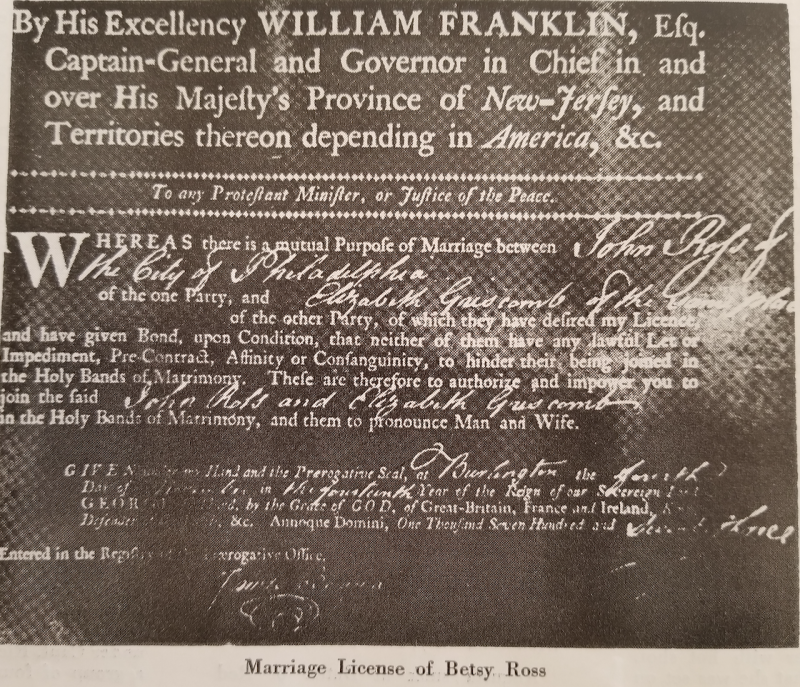 By His Excellency WILLIAM FRANKLIN, Eſq.
Captain-General and Governor in Chief in and
over His Majeſty's Province of New-Jerſey, and
Territories thereon depending in America, &c.
To any Proteſtant Miniſter, or Juſtice of the Peace.
WHEREAS there is a mutual Purpoſe of Marriage between John Roſs of
the City of Philadelphia
of the one Party, and Elizabeth Griscomb of the same place
of the other Party, of which they have deſired my Licence,
and have given Bond, upon Condition, that neither of them have any lawful Let or
Impediment, Pre-Contract, Affinity or Conſanguinity, to hinder their being joined in
the Holy Bands of Matrimony. Theſe are therefore to authorize and impower you to
join the ſaid John Roſs and Elizabeth Griscomb
in the Holy Bands of Matrimony, and them to pronounce Man and Wife.
GIVEN under my Hand and the Prerogative Seal, at Burlington the fourth
Day of in the fourteenth Year of the Reign of our Sovereign
GEORGE by the Grace of GOD, of Great-Britain, France and Ireland,
Defender &c. Annoque Domini, One Thouſand Seven Hundred and Seventy three
Entered in the Regiſtry of the Prerogative Office,
Marriage License of Betsy Ross